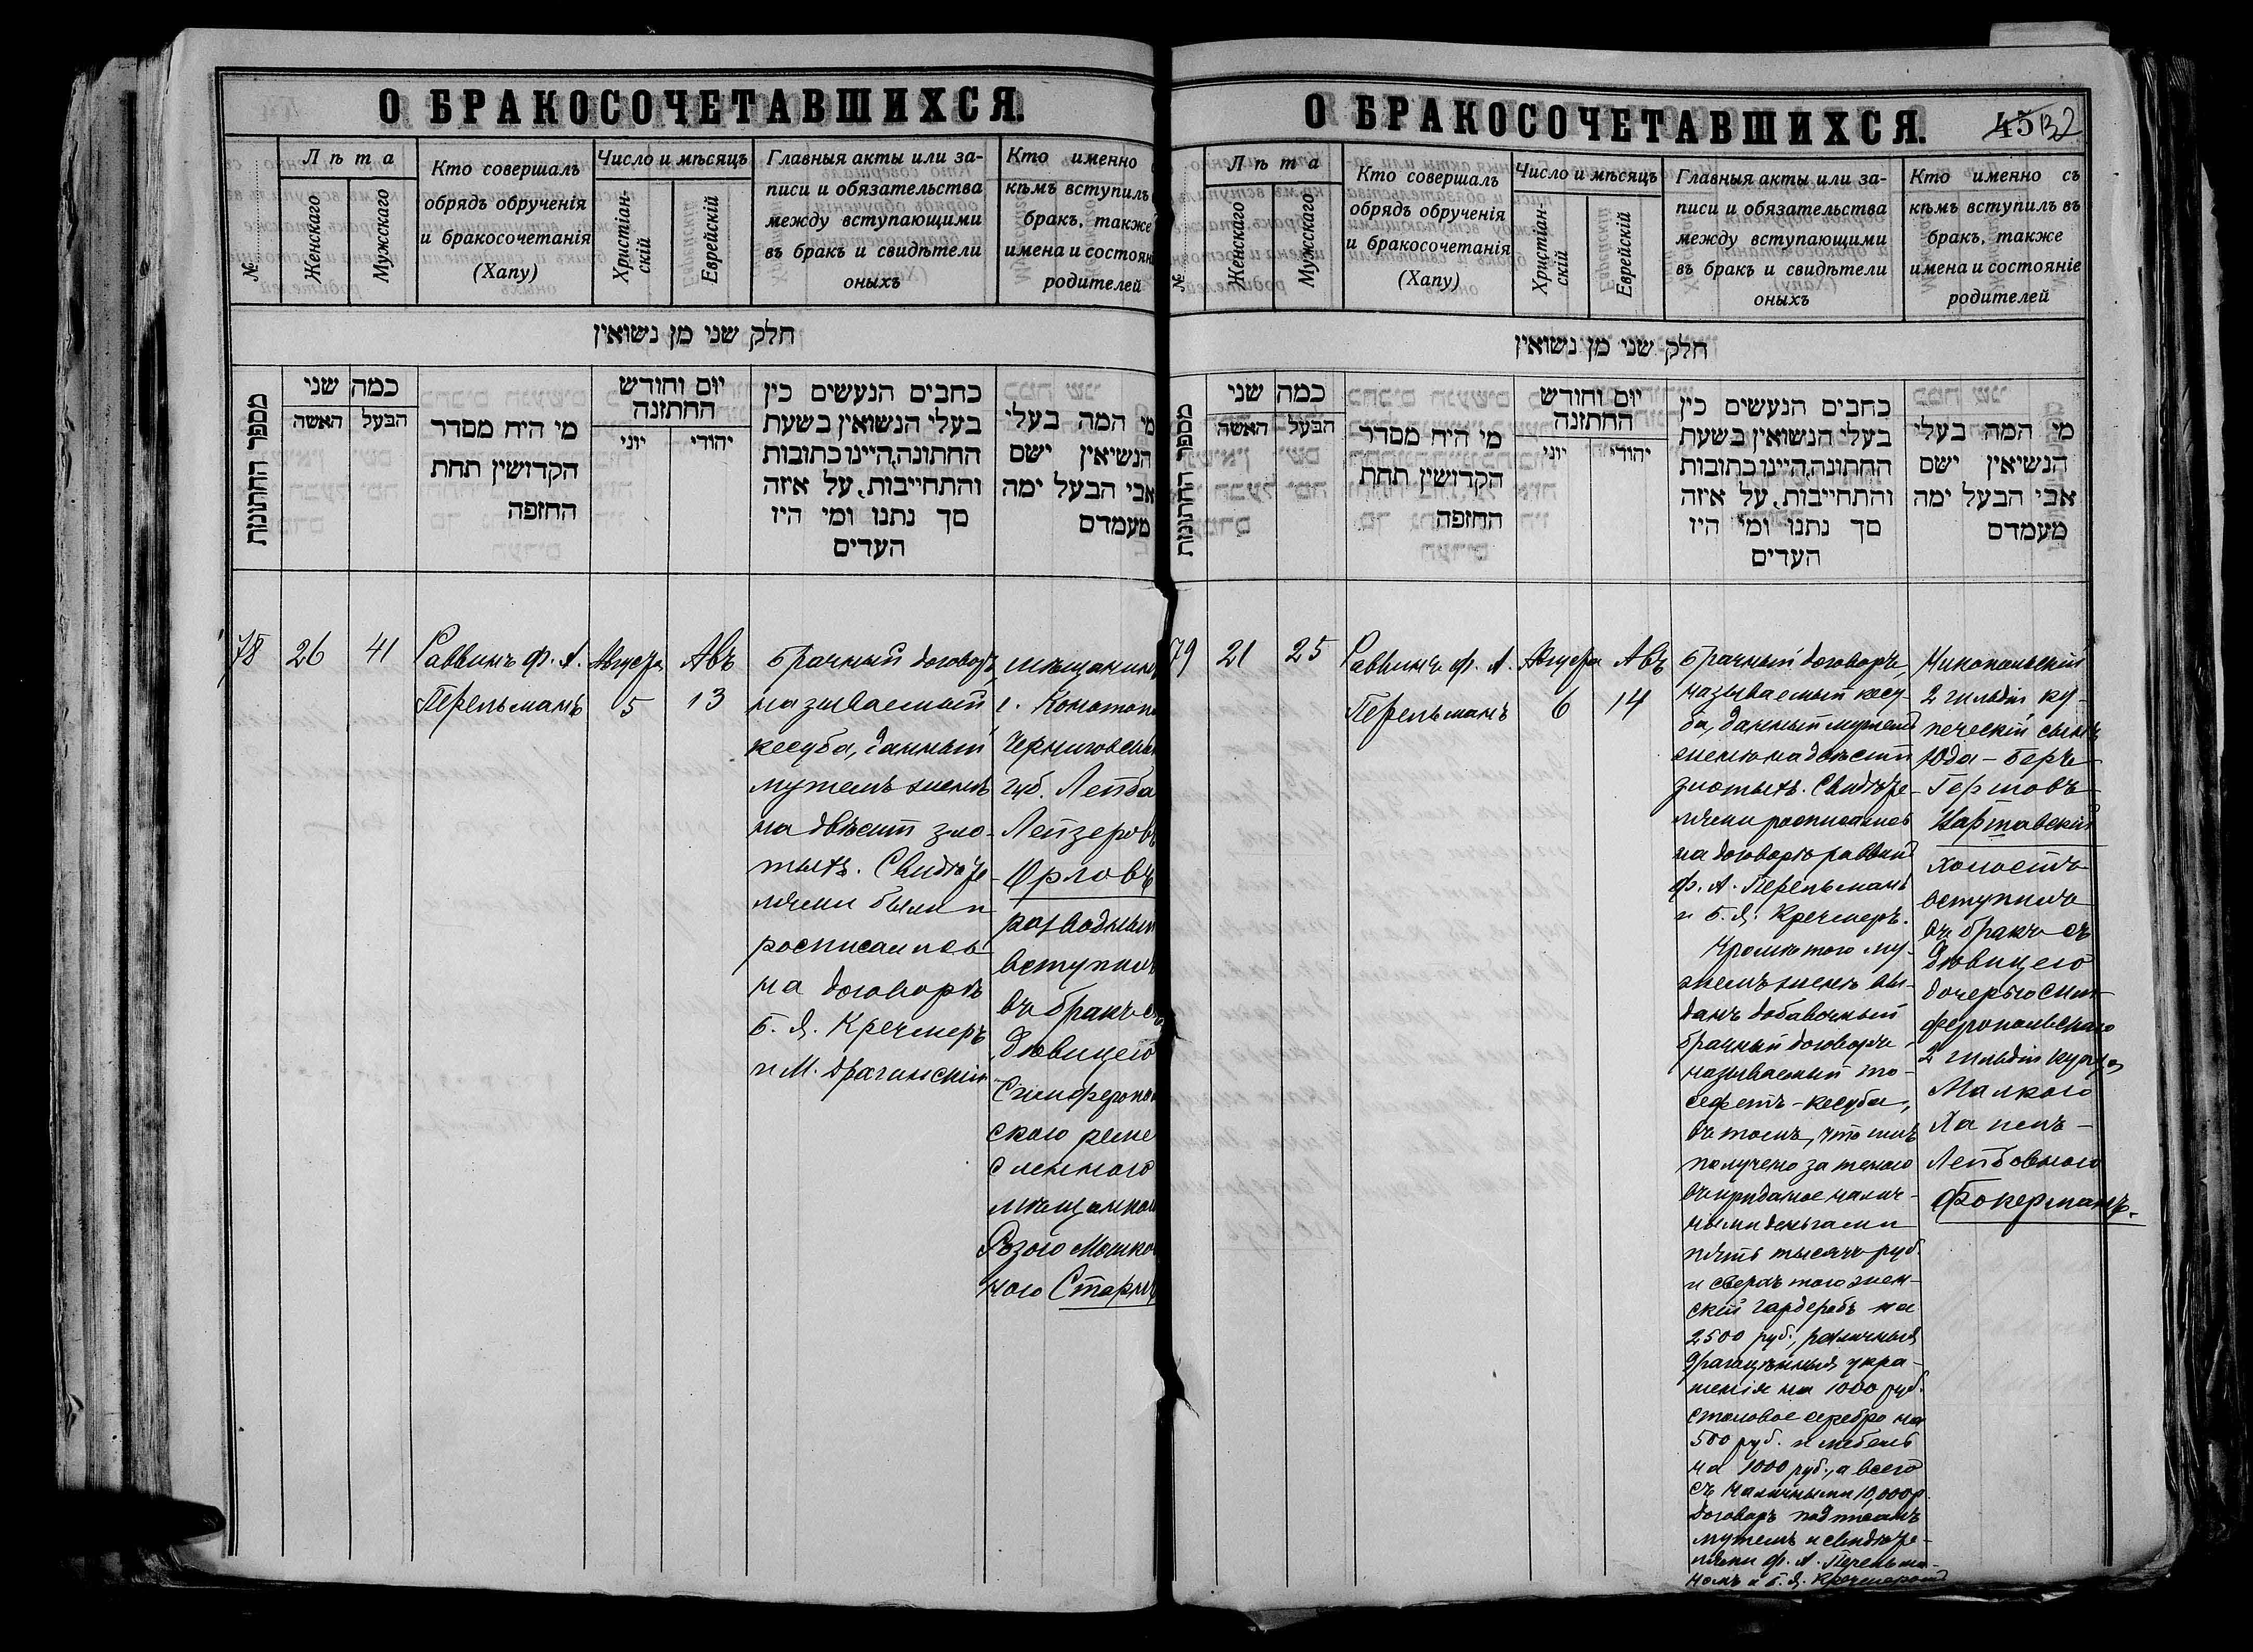 О БРАКОСОЧЕТАВШИХСЯ.
№
Лѣта
Женскаго
Мужскаго
Кто совершалъ
обрядъ обрученія
и бракосочетанія
(Хапу)
Число и мѣсяцъ
Христіан-
скій
Еврейскій
Главныя акты или за-
писи и обязательства
между вступающими
въ бракъ и свидѣтели
оныхъ
Кто именно
кѣмъ вступилъ
бракъ, также
имена и состоян
родителей
חלק שני מן נשואין
מספר החתונות
כמה שני
האשה
הבעל
מי היח מסדר
הקדושין תחת
החזפה
יום וחודש
החתזנה
יוני
יהודי
כחבים הנעשים כין
בעלי הנשואין בשעת
החתונה,היינו כתובות
והתחייבות, על איזה
סך נתנו ומי היו
העדים
מי המה בעלי
הנשיאין ישם
אבי הבעל ימה
מעמדם
78
26
41
Раввинъ Ф. А.
Перельманъ
Августа
5
Авъ
13
Брачный договоръ
называемый
кесуба, данный
мужемъ женѣ
на двѣсти зло-
тыхъ. Свидѣте-
лями были и
росписались
на договорѣ
Б. Я. Кречмеръ
и М. Драгинскій
мѣщанинъ
г. Конотопа
Черниговской
губ. Лейба
Лейзеровъ
Орловъ
разводный
вступилъ
въ бракъ съ
дѣвицею
Симферополь
скаго реме
сленного
мѣщанкою
Розою Мошко
ною
О БРАКОСОЧЕТАВШИХСЯ.
45
132
№
Лѣта
Женскаго
Мужскаго
Кто совершалъ
обрядъ обрученія
и бракосочетанія
(Хапу)
Число и мѣсяцъ
Христіан-
скій
Еврейскій
Главныя акты или за-
писи и обязательства
между вступающими
въ бракъ и свидѣтели
оныхъ
Кто именно съ
кѣмъ вступилъ въ
бракъ, также
имена и состояніе
родителей
חלק שני מן נשואין
מספר החתונות
כמה שני
האשה
הבעל
מי היח מסדר
הקדושין תחת
החזפה
יום וחודש
החתזנה
יוני
יהודי
כחבים הנעשים כין
בעלי הנשואין בשעת
החתונה,היינו כתובות
והתחייבות, על איזה
סך נתנו ומי היו
העדים
מי המה בעלי
הנשיאין ישם
אבי הבעל ימה
מעמדם
79
21
25
Раввинъ Ф. А.
Перельманъ
Августа
6
Авъ
14
Брачный договоръ,
называемый кесу-
ба, данный мужемъ
женѣ на двѣсти
злотыхъ. Свидѣте-
лями росписались
на договорѣ раввинъ
Ф. А. Перельманъ
и Б. Я. Кречмеръ.
Кромѣ того му-
жемъ женѣ вы-
данъ добавочный
брачный договоръ
называемый то-
сефетъ-кесуба,
въ томъ, что имъ
получено за женою
въ приданое налич-
ными деньгами
пять тысячъ руб.
и сверхъ того жен-
скій гардеробъ на
2500 руб., различныя
драгоцѣнныя укра-
шенія на 1000 руб.
столовое серебро на
500 руб. и мебель
на 1000 руб., а всего
съ наличными 10,000 р.
Договоръ подписанъ
мужемъ и свидѣте-
лями Ф. А. Перельма-
номъ и Б. Я. Кречмеромъ
Никопольскій
2 гильдіи ку-
печескій сынъ
Юда-Беръ
Гершовъ
Картавскій
холостъ
вступилъ
въ бракъ съ
дѣвицею
дочерью Сим-
феропольскаго
2 гильдіи купца
Малкою
Лейбовною
Фокерманъ.